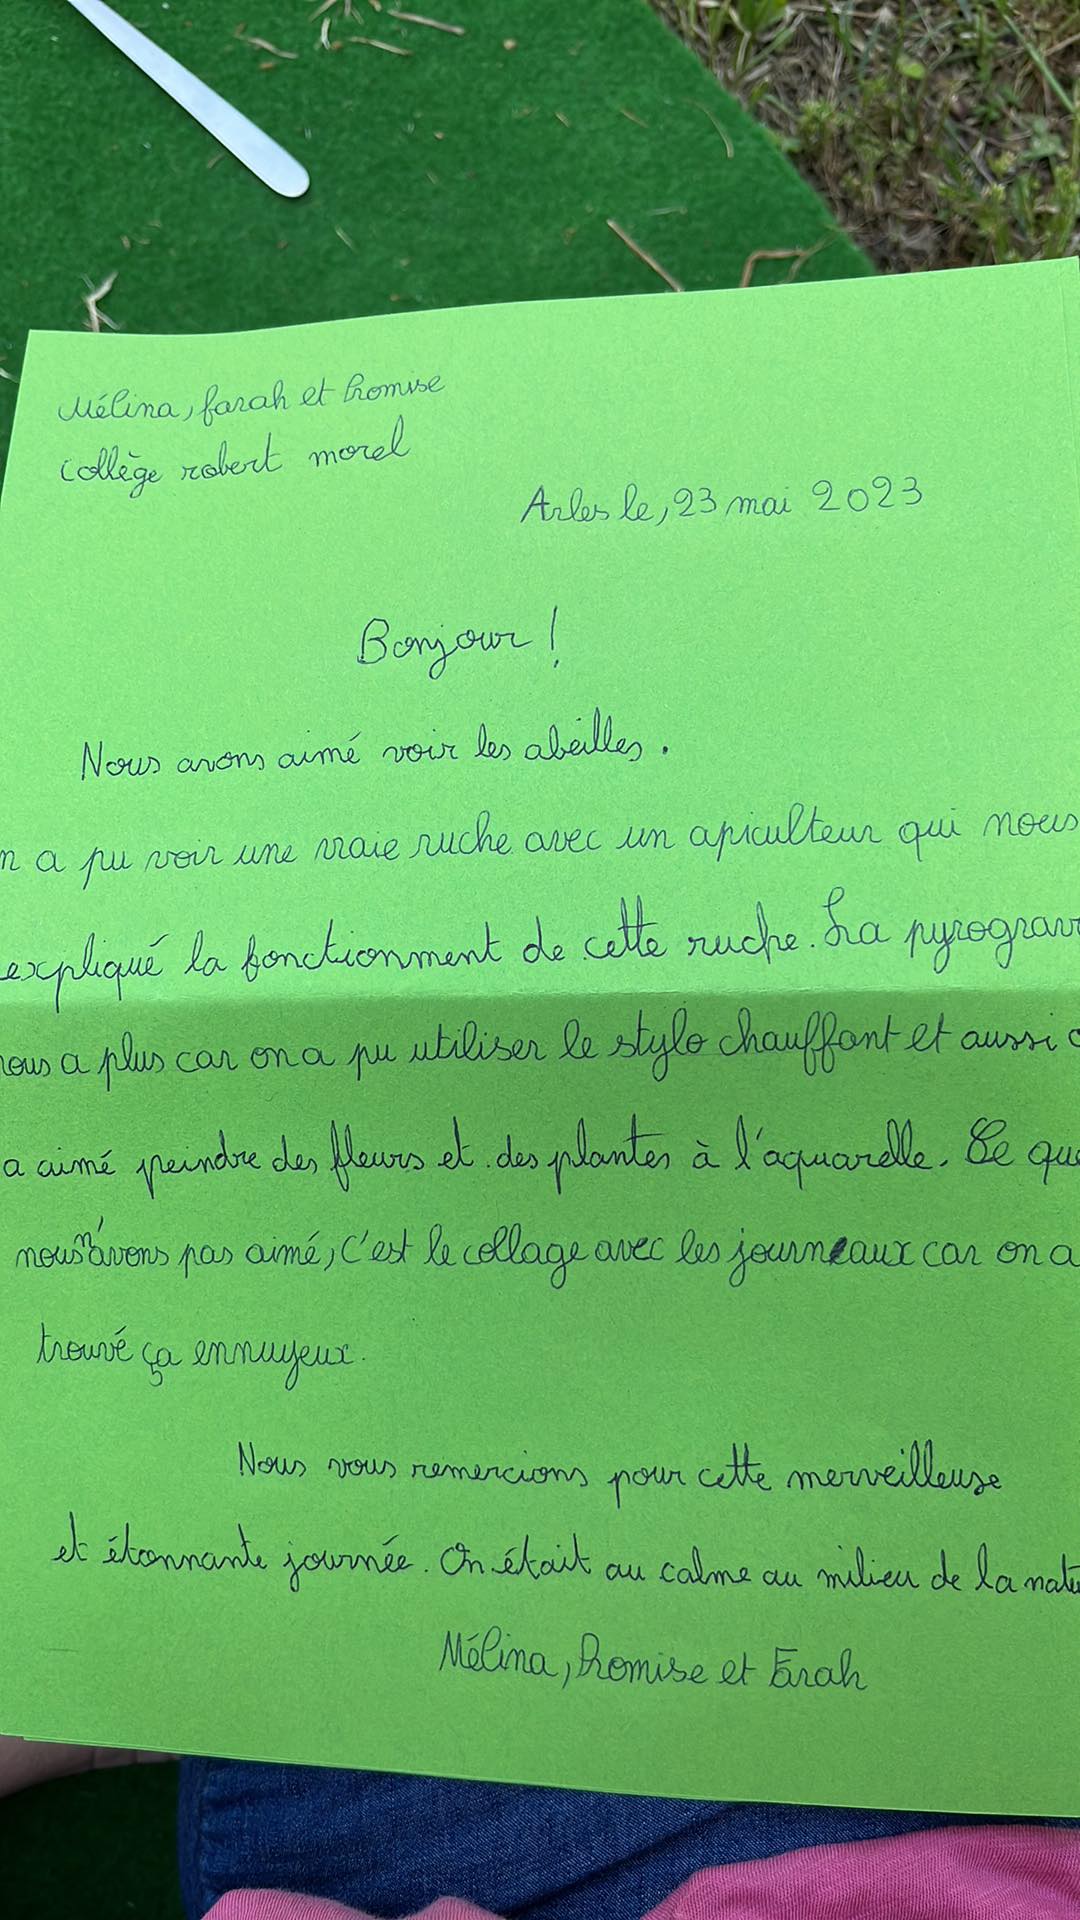 Mélina, farah et Promise
collège robert morel
Arles le, 23 mai 2023
Bonjour !
Nous avons aimé voir les abeilles.
n a pu voir une vraie ruche avec un apiculteur qui nous
expliqué la fonctionment de cette ruche. La pyrograv
nous a plus car on a pu utiliser le stylo chauffant et aussi
a aimé peindre des fleurs et des plantes à l'aquarelle. Ce que
nous n'avons pas aimé, c'est le collage avec les journeaux car on a
trouvé ça ennuyeux.
Nous vous remercions pour cette merveilleuse
et étonnante journée. On était au calme au milieu de la natu
Mélina, Promise et Farah